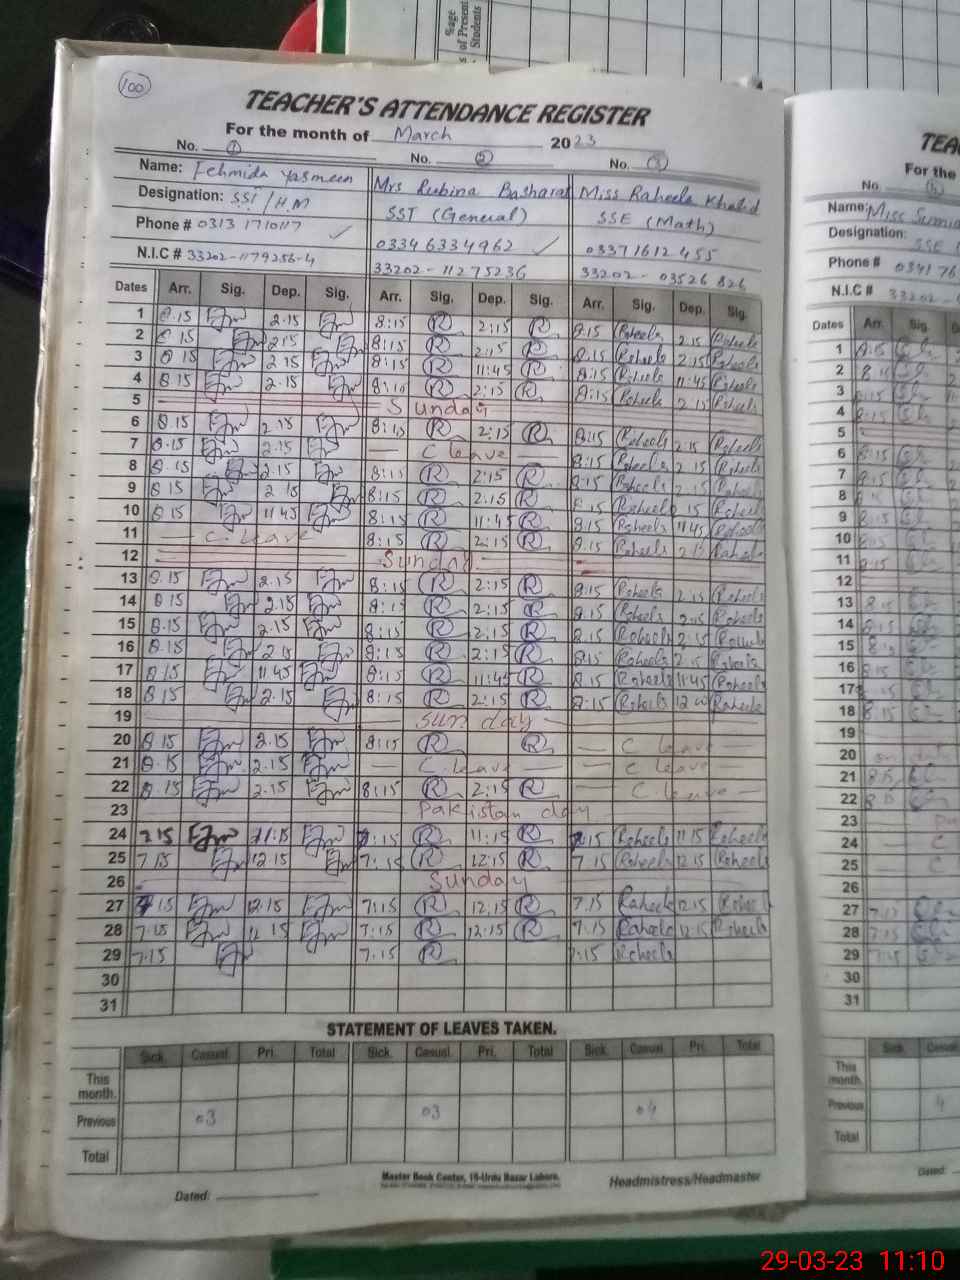 %age
of Present
Students
100
TEACHER'S ATTENDANCE REGISTER
For the month of March 2023
No. 1 No. 2 No. 3
Name: Fehmida Yasmeen Mrs Rubina Basharat Miss Raheela Khalid
Designation: SST/H.M SST (General) SSE (Math)
Phone # 0313 1710117 0334 6334962 03371612455
N.I.C # 33202-1179256-4 33202-11275236 33202-03526826
Dates Arr. Sig. Dep. Sig. Arr. Sig. Dep. Sig. Arr. Sig. Dep. Sig.
1 8.15 2.15 8:15 R 2:15 R 8:15 Raheela 2.15 Raheela
2 8 15 2.15 8:15 R 2:15 R 8.15 Raheela 2.15 Raheela
3 8 15 2 15 8:15 R 11:45 R 8:15 Raheela 11:45 Raheela
4 8 15 2.15 8:15 R 2:15 R 8:15 Raheela 2 15 Raheela
5 Sunday
6 8.15 2.15 8:15 R 2:15 R 8:15 Raheela 2.15 Raheela
7 8.15 2.15 C leave 8:15 Raheela 2 15 Raheela
8 8.15 2.15 8:15 R 2:15 R 8.15 Raheela 2.15 Raheela
9 8 15 2.15 8:15 R 2.15 R 8.15 Raheela 2 15 Raheela
10 8 15 11 45 8:15 R 11:45 R 8.15 Raheela 11 45 Raheela
11 C. leave 8:15 R 2:15 R 8.15 Raheela 2 15 Raheela
12 Sunday
13 8.15 2.15 8:15 R 2:15 R 8:15 Raheela 2.15 Raheela
14 8 15 2.15 8:15 R 2:15 R 8.15 Raheela 2.15 Raheela
15 8.15 2.15 8:15 R 2:15 R 8.15 Raheela 2.15 Raheela
16 8.15 2.15 8:15 R 2:15 R 8.15 Raheela 2.15 Raheela
17 8.15 11 45 8:15 R 11:45 R 8.15 Raheela 11 45 Raheela
18 8 15 2.15 8:15 R 2:15 R 8:15 Raheela 12 Raheela
19 Sunday
20 8 15 2.15 8:15 R R C leave
21 8.15 2.15 C. leave C leave
22 8.15 2.15 8:15 R 2:15 R C. leave
23 Pakistan day
24 7 15 11:15 7:15 R 11:15 R 7.15 Raheela 11 15 Raheela
25 7 15 12.15 7:15 R 12:15 R 7 15 Raheela 12 15 Raheela
26 Sunday
27 7.15 12.15 7:15 R 12:15 R 7.15 Raheela 12.15 Raheela
28 7.15 12 15 7:15 R 12:15 R 7.15 Raheela 12.15 Raheela
29 7:15 7.15 R 7:15 Raheela
30
31
STATEMENT OF LEAVES TAKEN.
Sick. Casual. Pri. Total Sick. Casual. Pri. Total Sick. Casual. Pri. Total
This month.
Previous 03 03 04
Total
Dated:
Master Book Center, 15-Urdu Bazar Lahore.
Headmistress/Headmaster
TEA
For the
No.
Name: Miss
Designation: SSE
Phone # 0341 76
N.I.C # 33202-
Dates Arr. Sig.
1
2
3
4
5
6
7
8
9
10
11
12
13
14
15
16
17
18
19
20
21
22
23
24 C
25 C
26
27
28
29
30
31
Sick. Casual
This month.
Previous 4
Total
Dated:
29-03-23 11:10